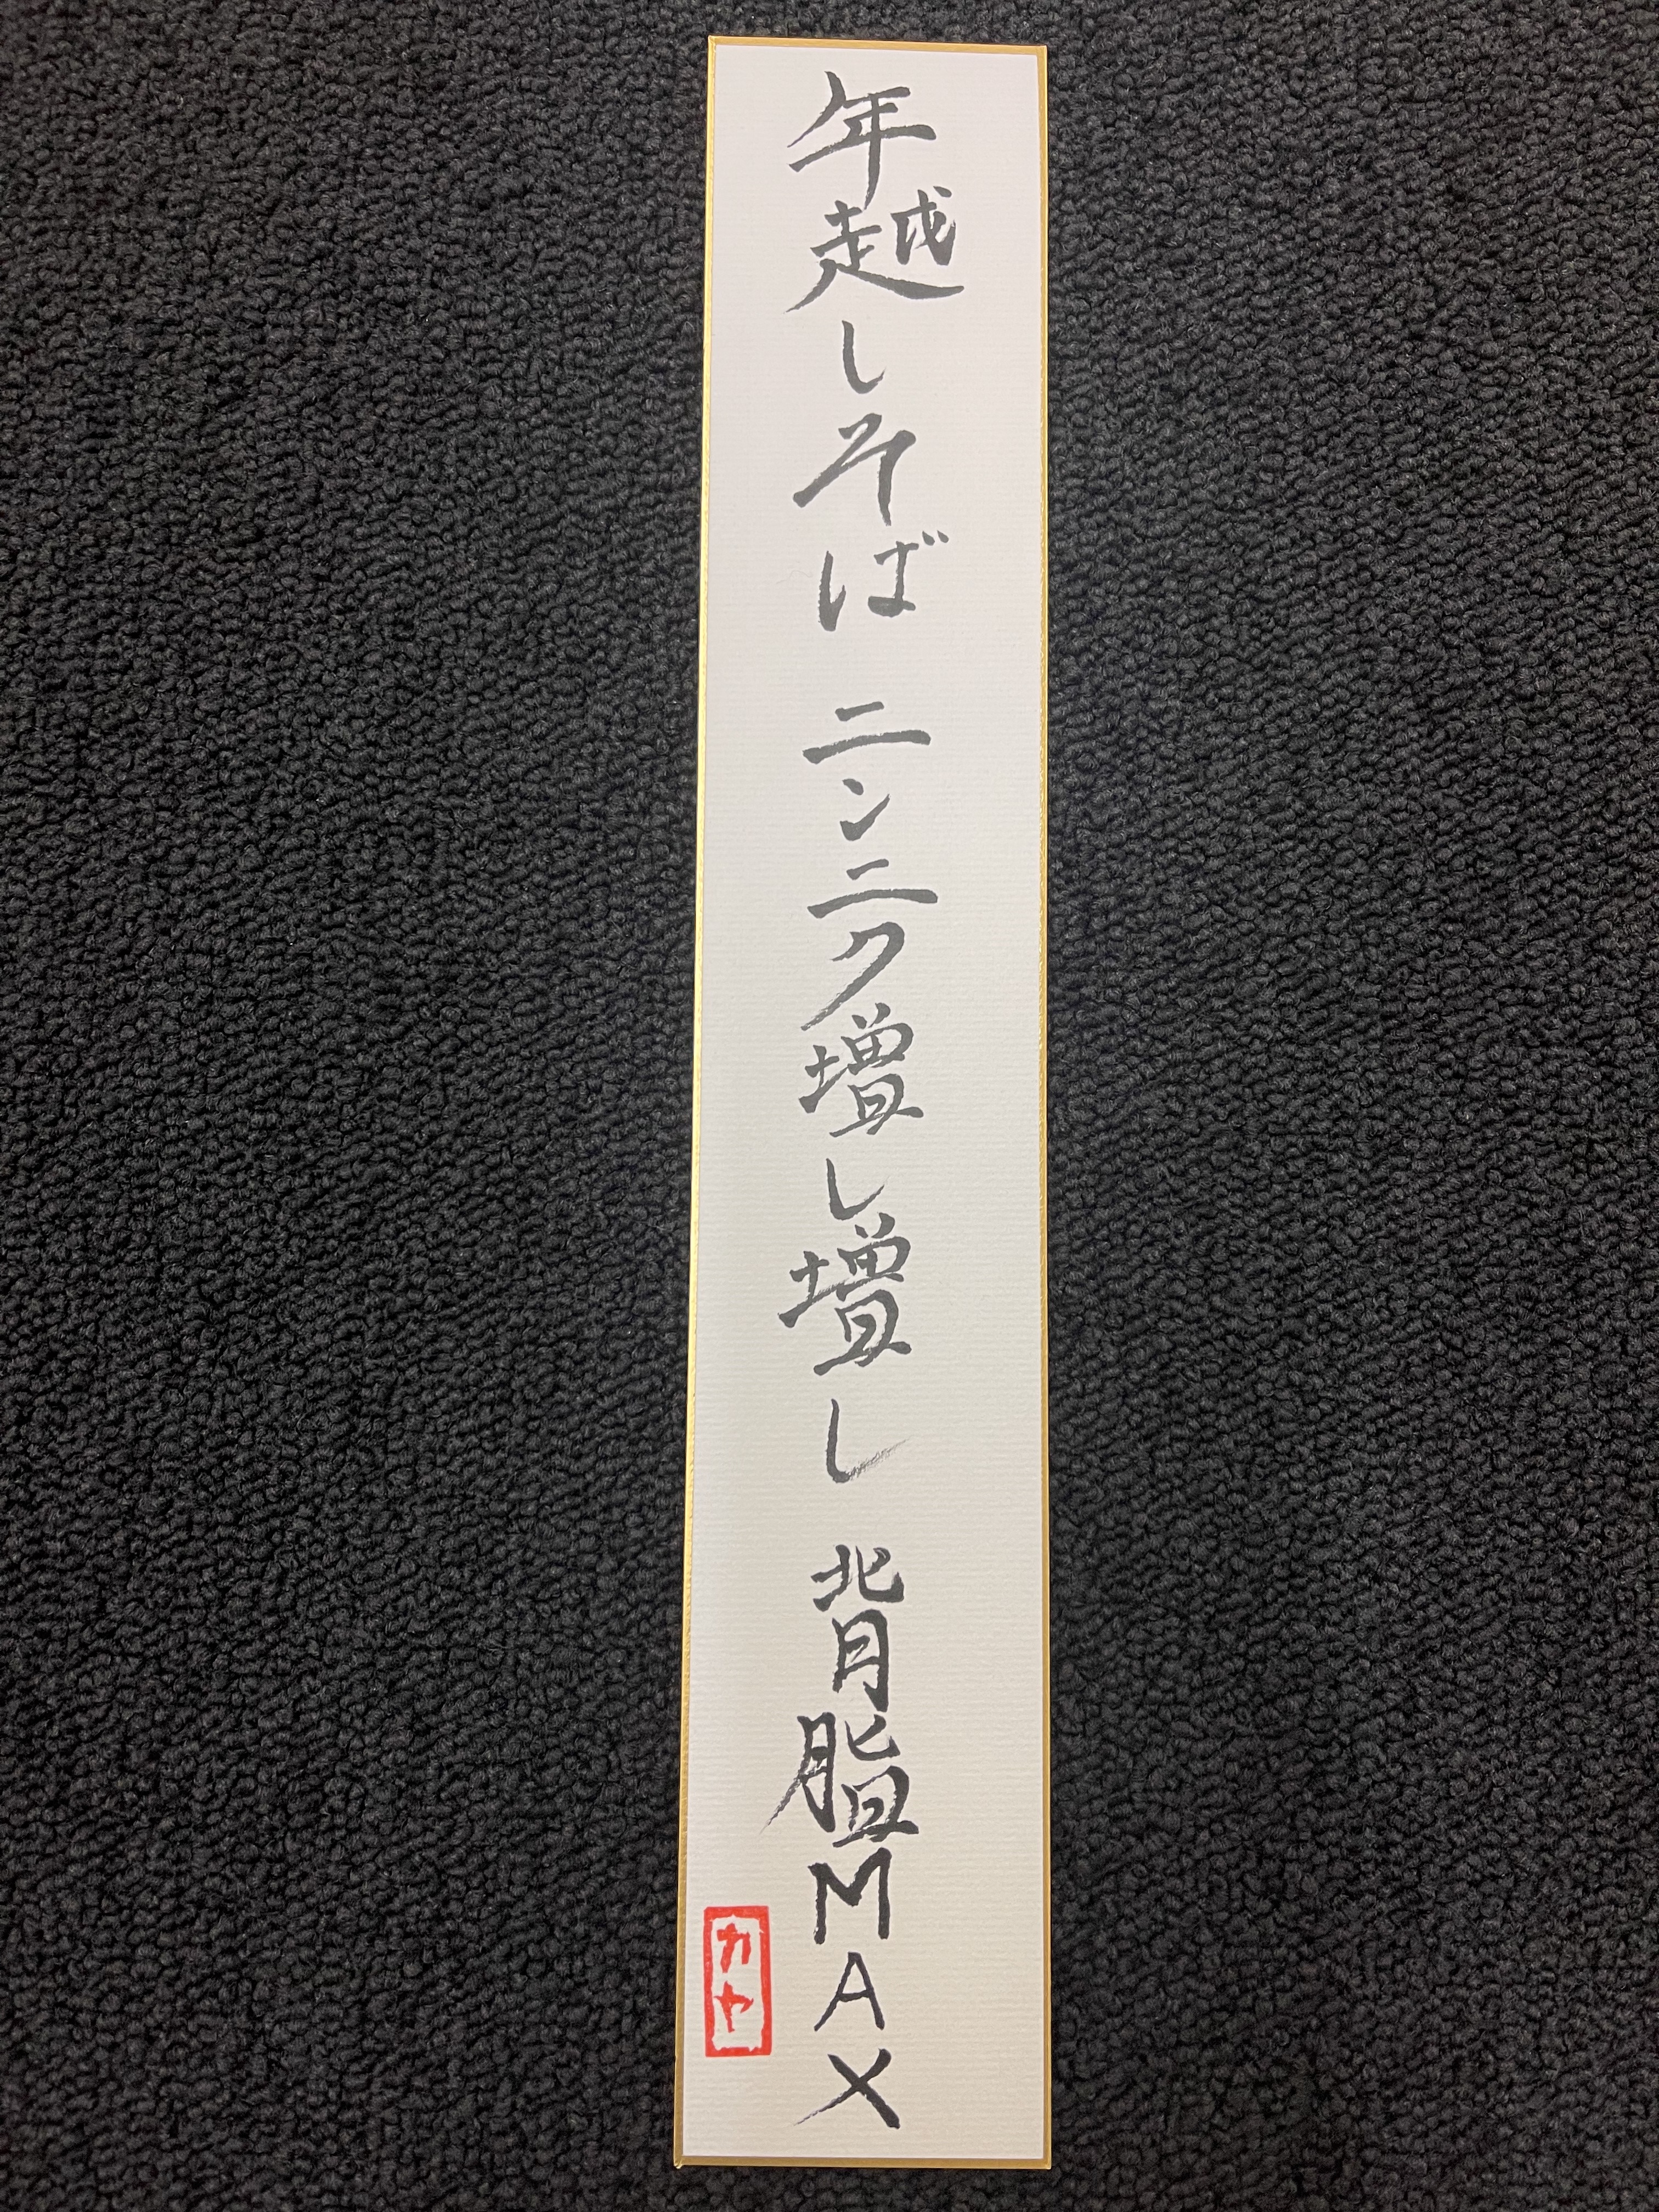 年越しそば ニンニク増し増し 背脂MAX
カヤ